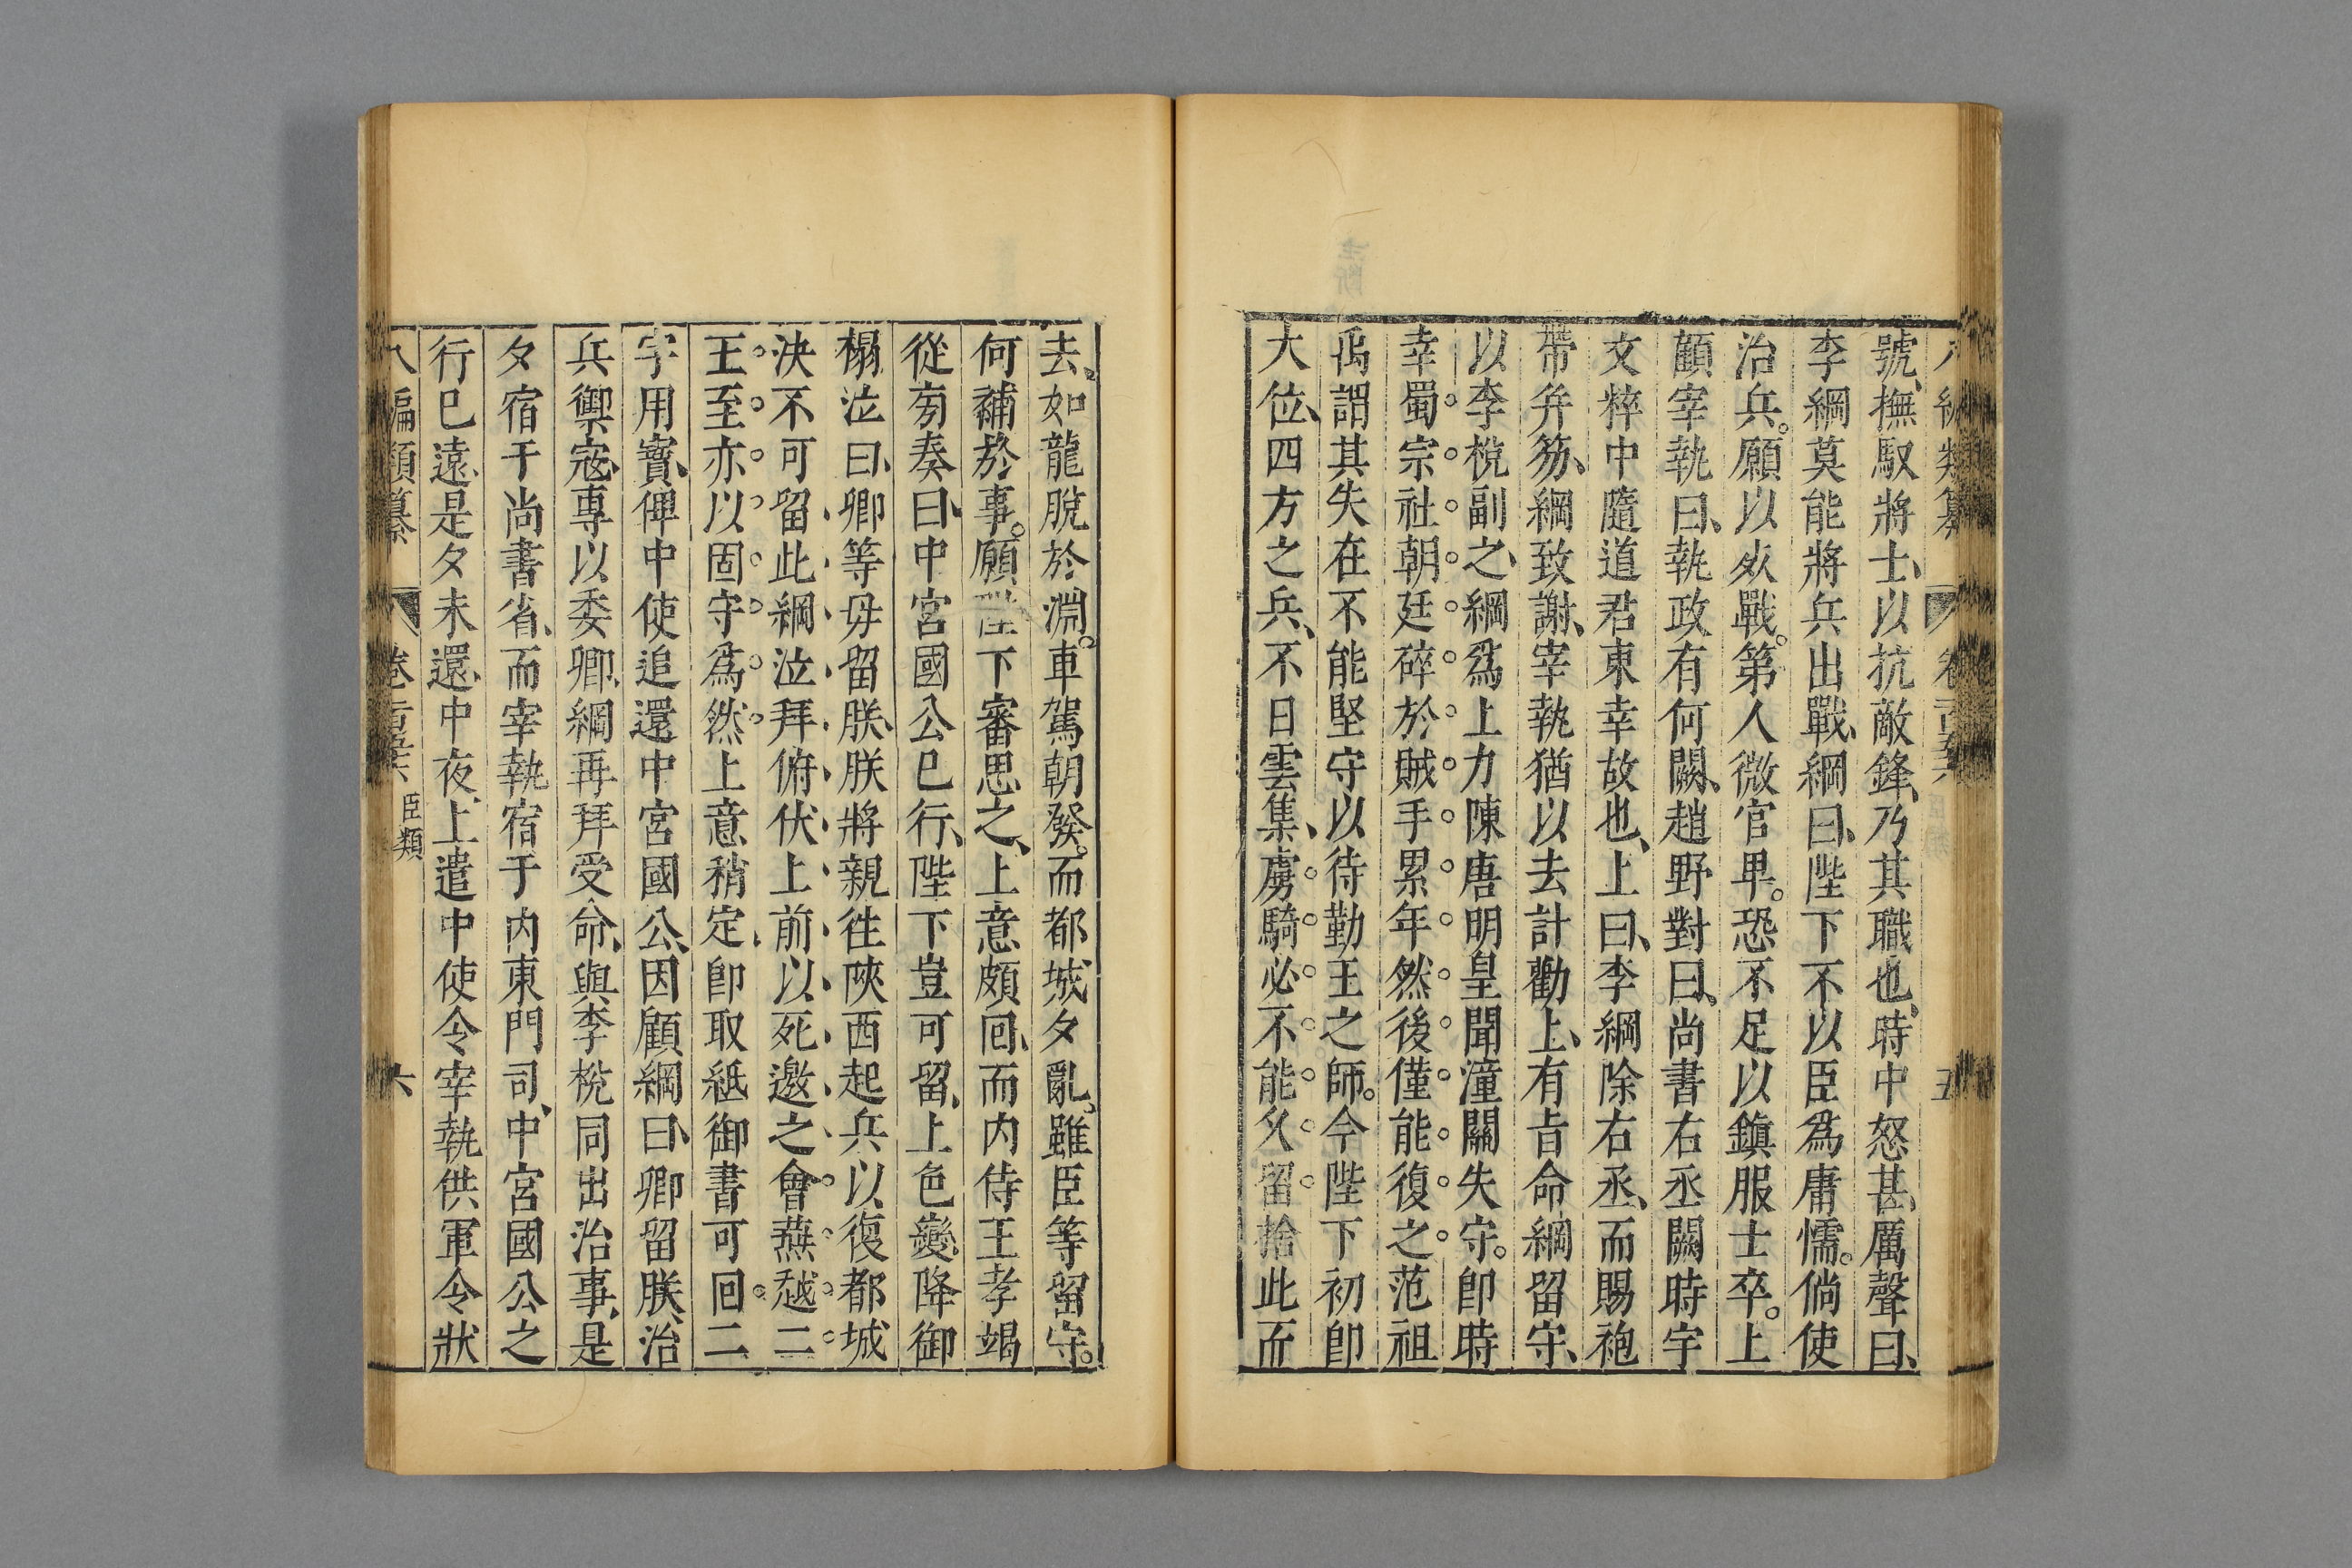 八編類纂 卷 五
號、撫馭將士、以抗敵鋒、乃其職也、時中怒甚、厲聲曰、
李綱莫能將兵出戰、綱曰、陛下不以臣爲庸懦。倘使
治兵。願以死戰。第人微官卑。恐不足以鎭服士卒。上
顧宰執曰、執政有何闕、趙野對曰、尚書右丞闕時宇
文粹中隨道君東幸故也、上曰、李綱除右丞、而賜袍
帶并笏、綱致謝、宰執猶以去計勸上、有旨命綱留守、
以李梲副之、綱爲上力陳唐明皇聞潼關失守。卽時
幸蜀。宗社朝廷碎於賊手累年然後僅能復之。范祖
禹謂其失在不能堅守以待勤王之師。今陛下初卽
大位、四方之兵、不日雲集、虜騎必不能久留捨此而
去、如龍脫於淵。車駕朝發。而都城夕亂。雖臣等留守。
何補於事。願陛下審思之、上意頗囘、而内侍王孝竭
從旁奏曰、中宮國公已行、陛下豈可留、上色變降御
榻泣曰、卿等毋留朕、朕將親往陝西起兵以復都城
決不可留此綱泣拜俯伏上前以死邀之會燕越二
王至亦以固守爲然上意稍定卽取紙御書可囘二
字用寶、俾中使追還中宮國公、因顧綱曰、卿留朕、治
兵禦寇、專以委卿、綱再拜受命、與李梲同出治事、是
夕宿于尚書省、而宰執宿于内東門司、中宮國公之
行已遠、是夕未還、中夜、上遣中使令宰執供軍令狀
八編類纂 卷 臣類 六